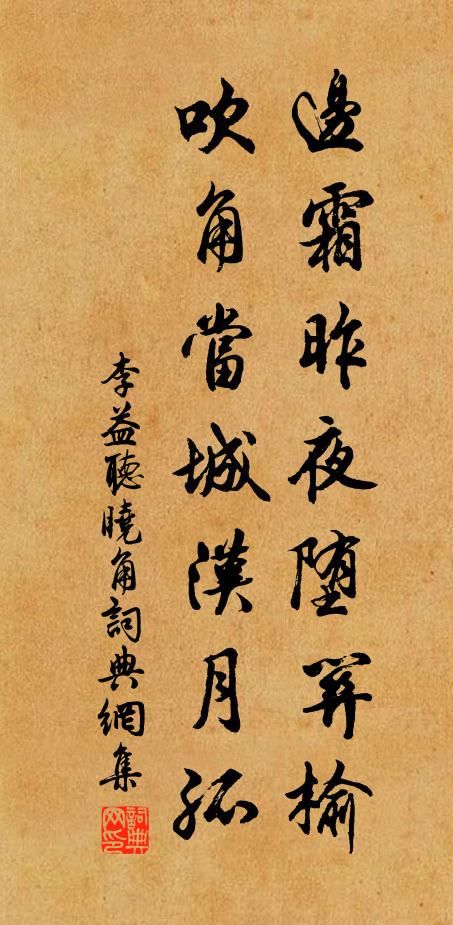 邊霜昨夜墮關榆
吹角當城漢月孤
李益聽曉角詞典網集
詞典網印